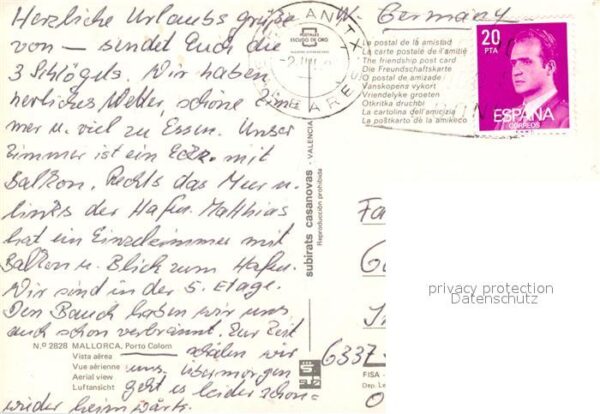 Herzliche Urlaubsgrüße
von — sendet Euch die
3 Schlögels. Wir haben
herrliches Wetter, schöne Zim-
mer u. viel zu Essen. Unser
Zimmer ist ein Eckz. mit
Balkon. Rechts das Meer u.
links der Hafen. Matthias
hat ein Einzelzimmer mit
Balkon u. Blick zum Hafen.
Wir sind in der 5. Etage.
Den Bauch haben wir uns
auch schon verbrannt. Zur Zeit
schälen wir
uns. übermorgen
geht es leider schon
wieder heimwärts.
N.º 2828 MALLORCA. Porto Colom
Vista aérea
Vue aérienne
Aerial view
Luftansicht
subirats casanovas - VALENCIA
Reproducción prohibida
W. Germany
POSTALES
ESCUDO DE ORO
La postal de la amistad
La carte postale de l'amitié
The friendship post card
Die Freundschaftskarte
O postal de amizade
Vanskapens vykort
Vriendelyke groeten
Otkritka druchbi
La cartolina dell'amicizia
La poŝtkarto de la amikeco
20
PTA
ESPAÑA
CORREOS
Fa
G
6337
FISA -
Dep. Le
privacy protection
Datenschutz